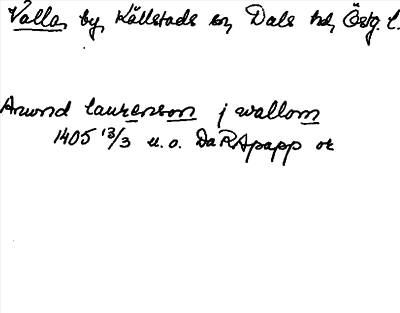 Valla, by, Källstads sn, Dals hd, Östg. l.
Arwnd laurenson j wallom
1405 13/3 u. o. Da RApapp or